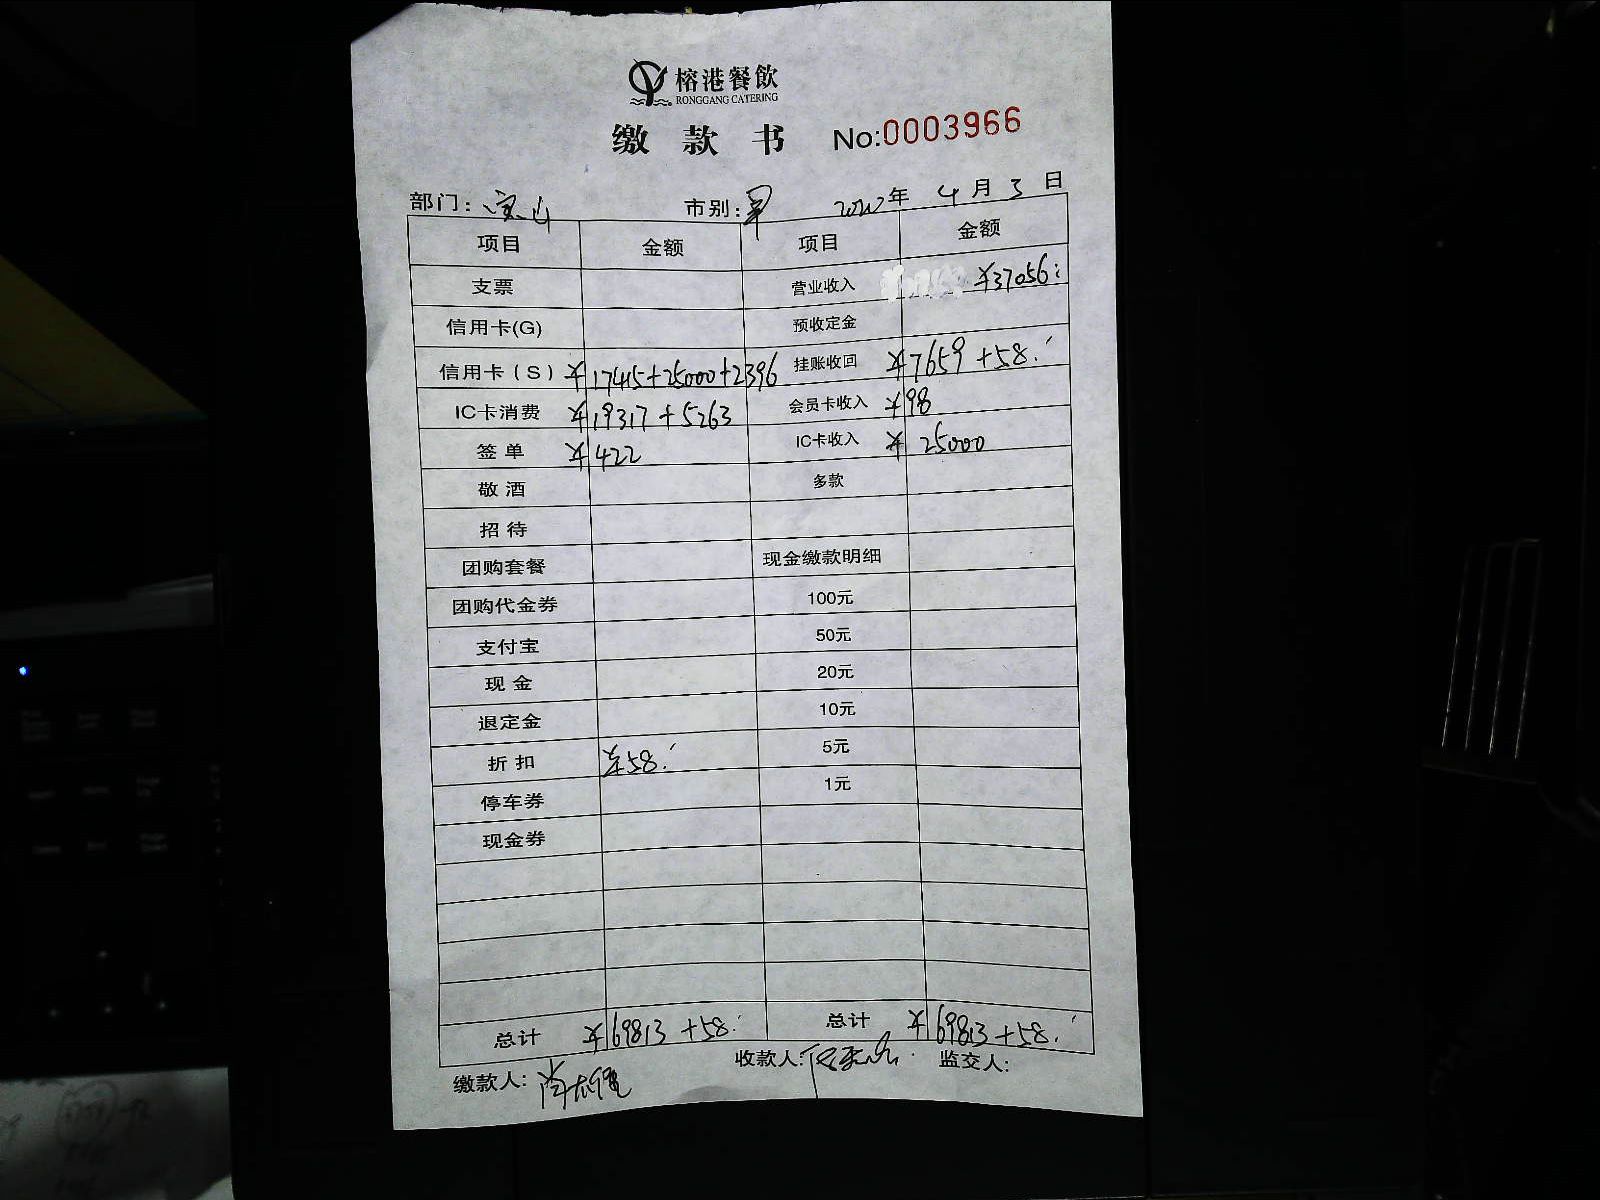 榕港餐飲
RONGGANG CATERING
缴款书 No:0003966
部门:宝山 市别:早 年 4月3日
项目 金额 项目 金额
支票 营业收入 ¥37056:
信用卡(G) 预收定金
信用卡(S) ¥17415+25000+2396 挂账收回 ¥7659+58.'
IC卡消费 ¥19317+5263 会员卡收入 ¥98
签单 ¥422 IC卡收入 ¥25000
敬酒 多款
招待
团购套餐 现金缴款明细
团购代金券 100元
支付宝 50元
现金 20元
退定金 10元
折扣 ¥58.' 5元
停车券 1元
现金券
总计 ¥69813+58.' 总计 ¥69813+58.'
缴款人: 收款人: 监交人: